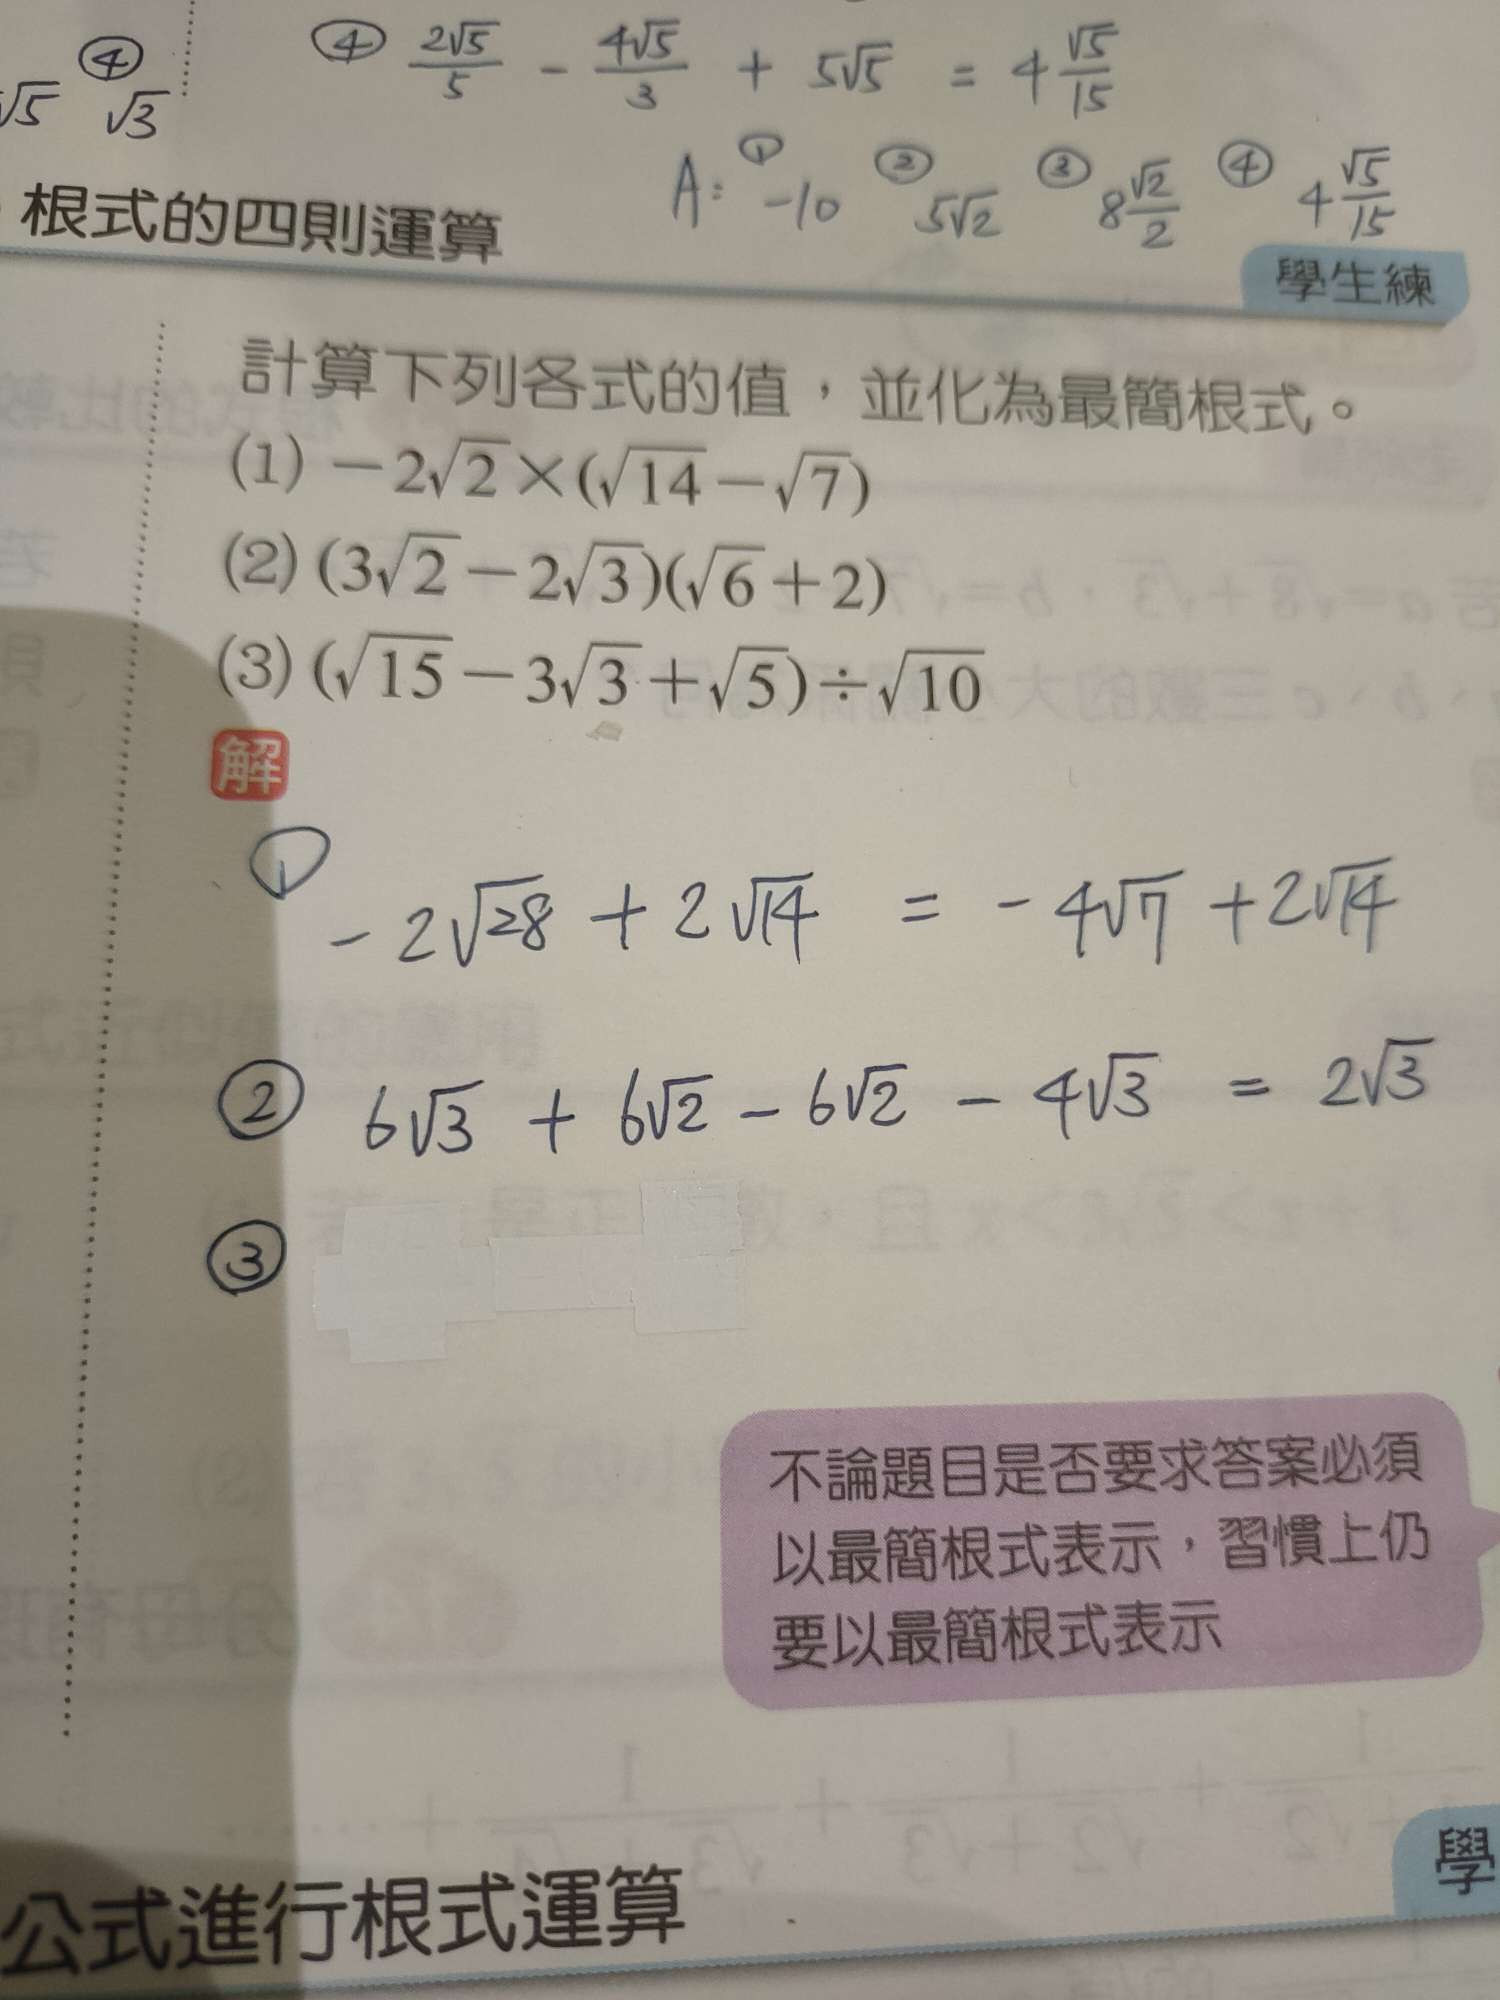 ④ 2√5/5 - 4√5/3 + 5√5 = 4 √5/15
√5 ④ √3
A: ① -10 ② 5√2 ③ 8 √2/2 ④ 4 √5/15
根式的四則運算
學生練
計算下列各式的值，並化為最簡根式。
(1) －2√2×(√14－√7)
(2) (3√2－2√3)(√6＋2)
(3) (√15－3√3＋√5)÷√10
解
① -2√28 + 2√14 = -4√7 + 2√14
② 6√3 + 6√2 - 6√2 - 4√3 = 2√3
③
不論題目是否要求答案必須
以最簡根式表示，習慣上仍
要以最簡根式表示
學
公式進行根式運算